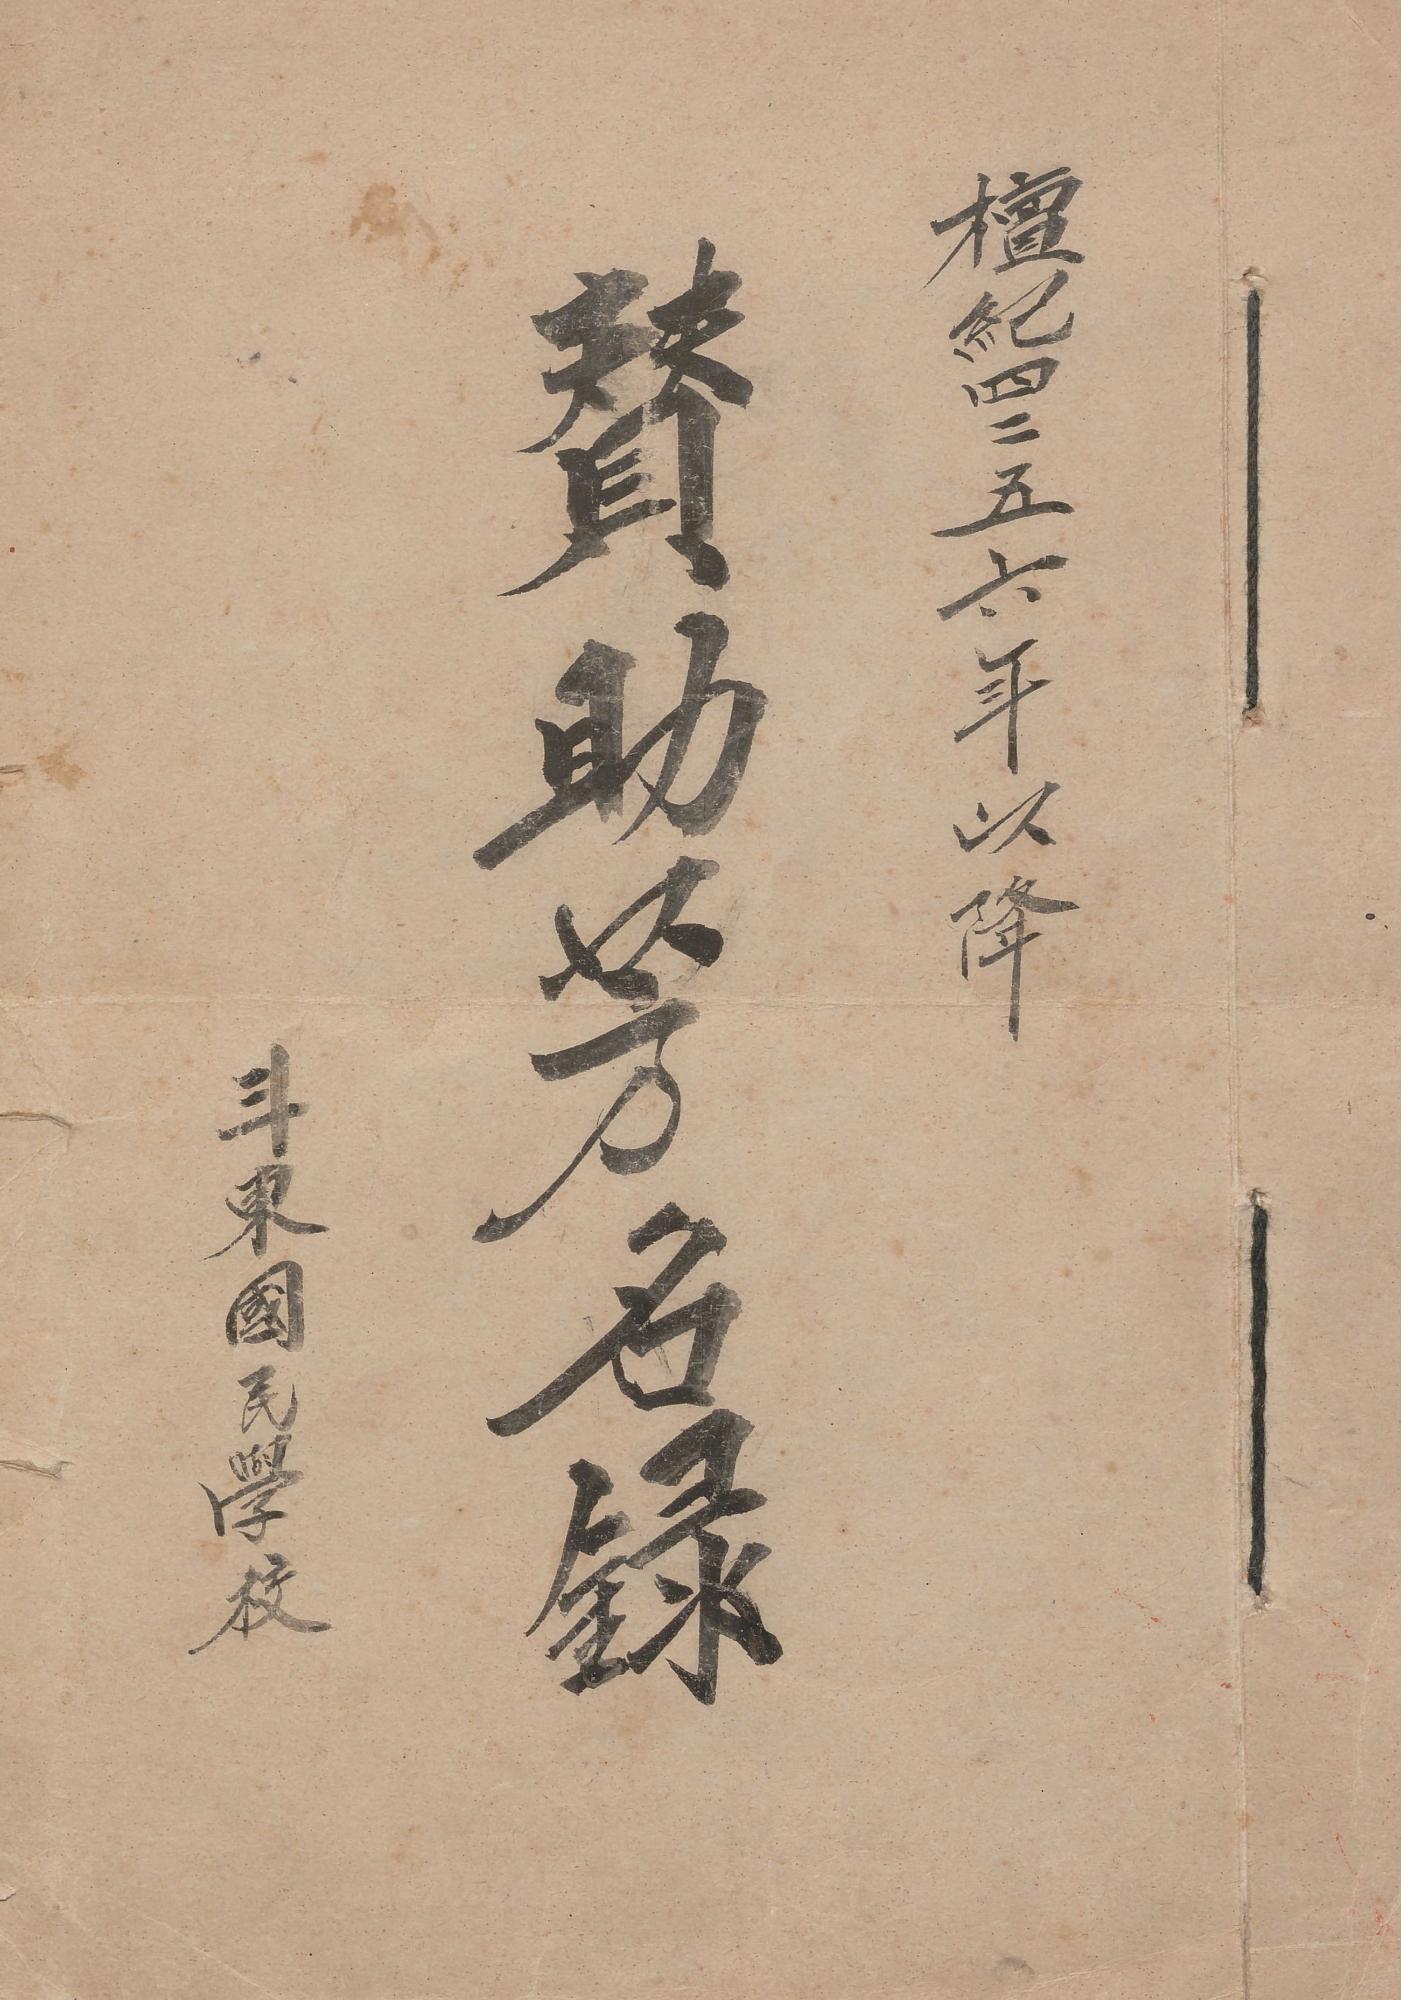 檀紀四二五六年以降
賛助芳名録
斗東國民學校